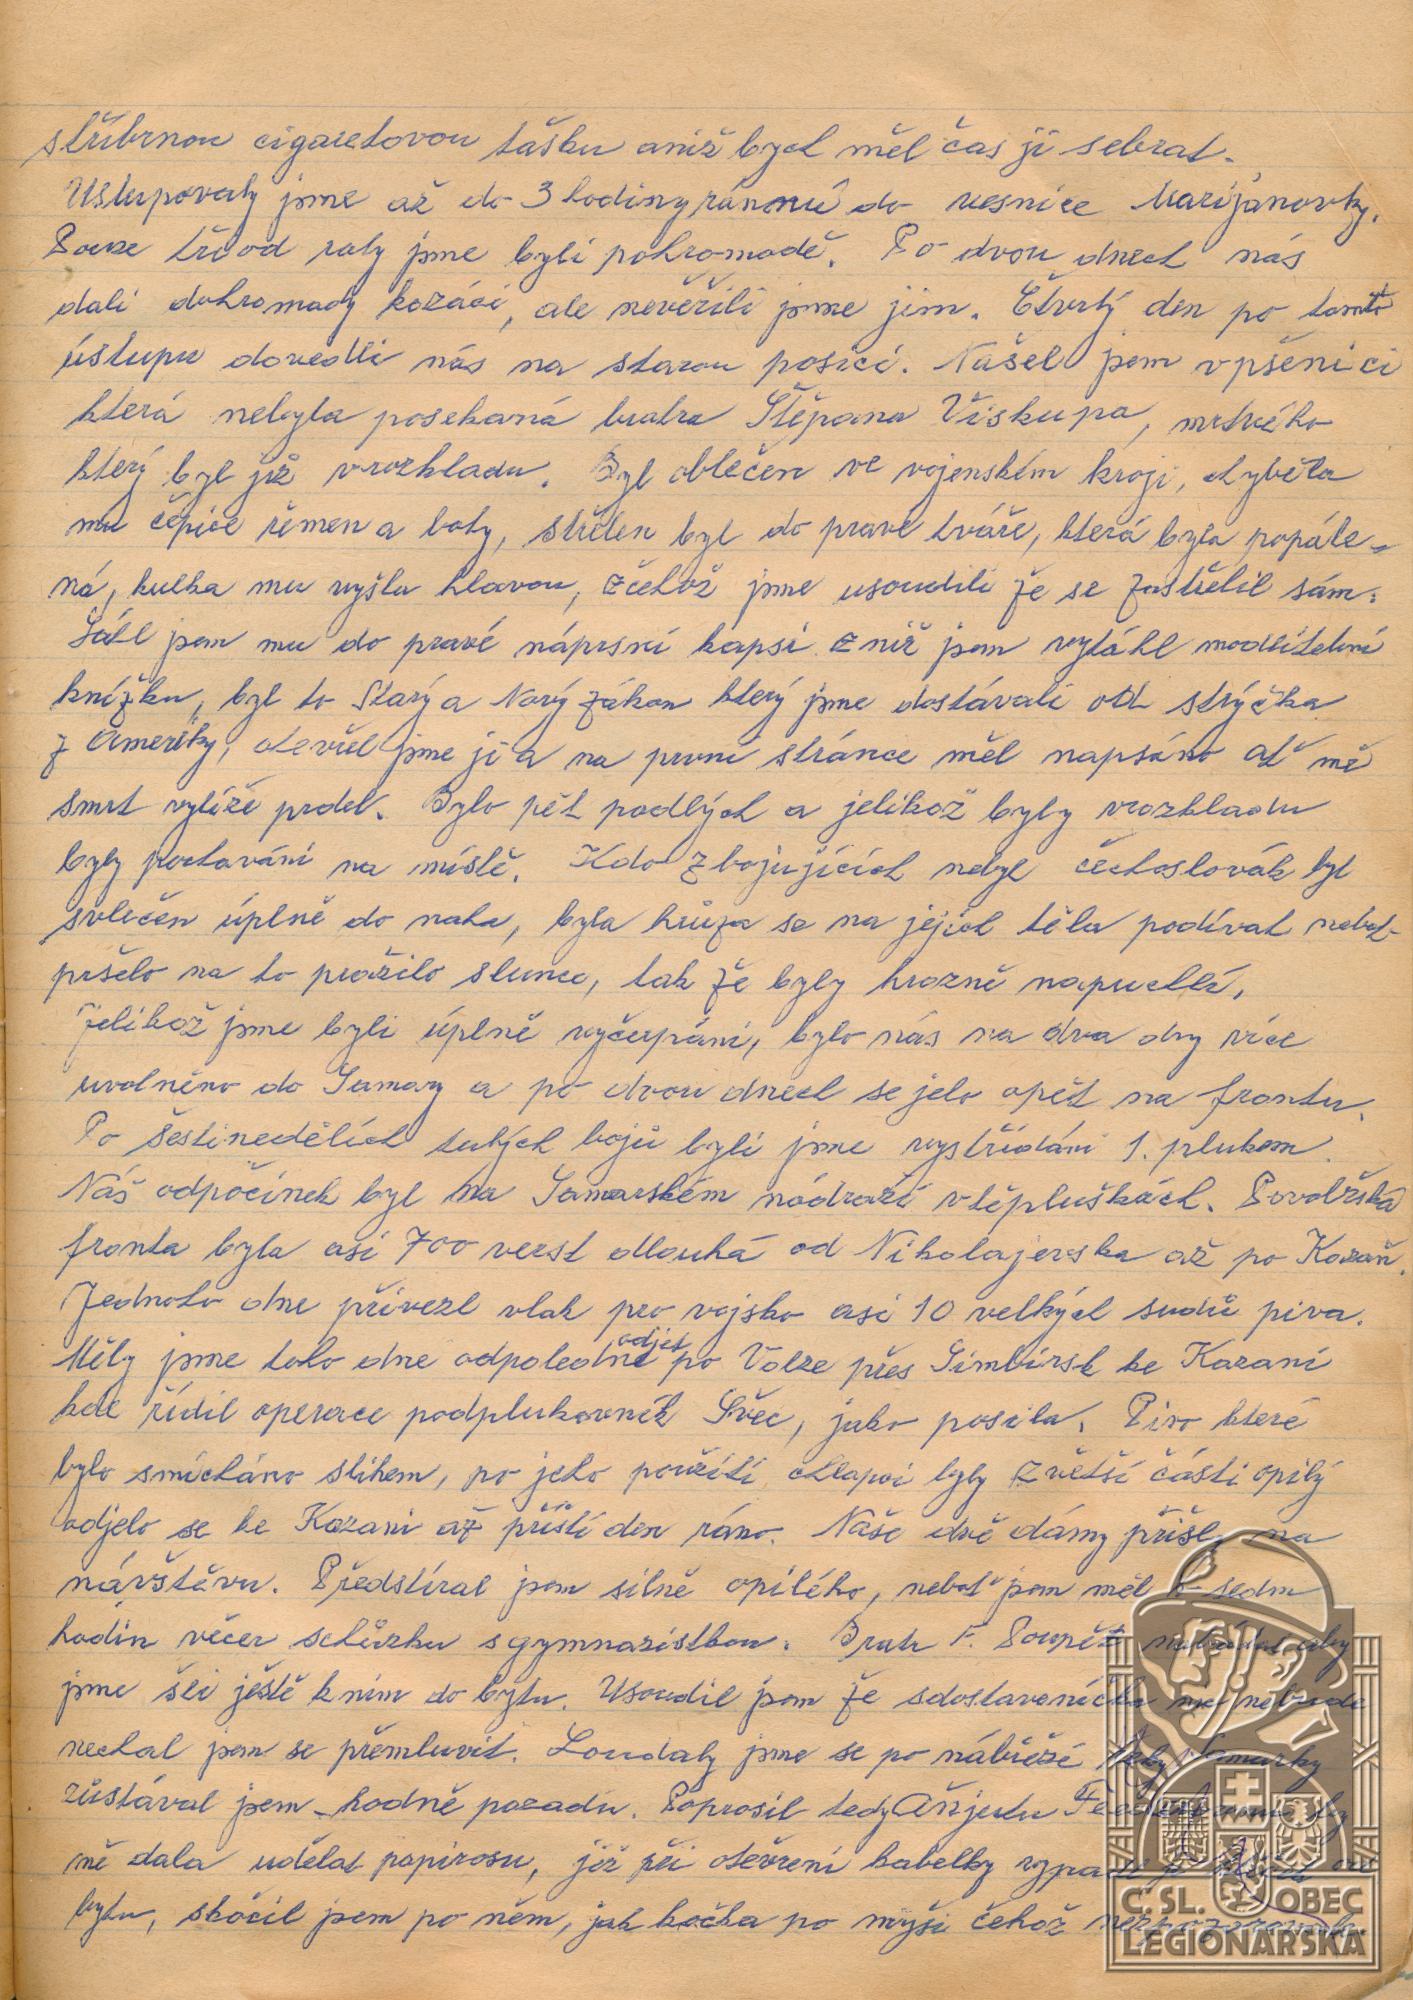 stříbrnou cigaretovou tašku aniž bych měl čas ji sebrat.
Ustupovaly jsme až do 3 hodiny ránonů do vesnice Marijanovky.
Pouze tři od roty jsme byli pohromadě. Po dvou dnech nás
dali dohromady kozáci, ale nevěřili jsme jim. Čtvrtý den po tomto
ústupu dovedli nás na starou posici. Našel jsem vpšenici
která nebyla posekaná bratra Štěpana Viskupa, mrtvého
který byl již vrozkladu. Byl oblečen ve vojenském kroji, chyběla
mu čepice řemen a boty, střelen byl do pravé tváře, která byla popále-
ná, kulka mu vyšla hlavou, zčehož jsme usoudili že se zastřelil sám.
Sáhl jsem mu do pravé náprsní kapsi zníž jsem vytáhl modlitební
knížku, byl to Starý a Nový zákon který jsme dostávali od strýčka
z Ameriky, otevřel jsme ji a na první stránce měl napsáno ať mě
smrt vylíže prdel. Bylo pět padlých a jelikož byly vrozkladu
byly pochováni na místě. Kdo zbojujících nebyl čechoslovák byl
svlečen úplně do naha, byla hrůza se na jejich těla podívat neboť
pršelo na to pražilo slunce, tak že byly hrozně napuchlí.
Jelikož jsme byli úplně vyčerpáni, bylo nás na dva dny více
uvolněno do Samary a po dvou dnech se jelo opět na frontu.
Po šestinedělích tuhých bojů byli jsme vystřídáni 1. plukem.
Náš odpočinek byl na Samarském nádraží vtěpluškách. Povolžská
fronta byla asi 700 verst dlouhá od Nikolajevska až po Kazaň.
Jednoho dne přivezl vlak pro vojsko asi 10 velkých sudů piva.
Měly jsme toho dne odpoledne odjet po Volze přes Simbirsk ke Kazani
kde řídil operace podplukovník Švec, jako posila. Pivo které
bylo smícháno slihem, po jeho použití chlapci byly zvětší části opilý
odjelo se ke Kazani až příští den ráno. Naše dvě dámy přišly na
návštěvu. Předstíral jsem silně opilého, neboť jsem měl o sedm
hodin večer schůzku sgymnazistkou. Bratr F. Poupět naléhal aby
jsme šli ještě knim do bytu. Usoudil jsem že sdostaveníčka nic nebude
nechal jsem se přemluvit. Loudaly jsme se po nábřeží řeky Samarky
zůstával jsem hodně pozadu. Poprosil tedy Aňjutu by
mě dala udělat papirosu, jíž při otevření kabelky vypadl klíč od
bytu, skočil jsem po něm, jak kočka po myši čehož nezpozorovala.
Č. SL. OBEC
LEGIONÁŘSKÁ